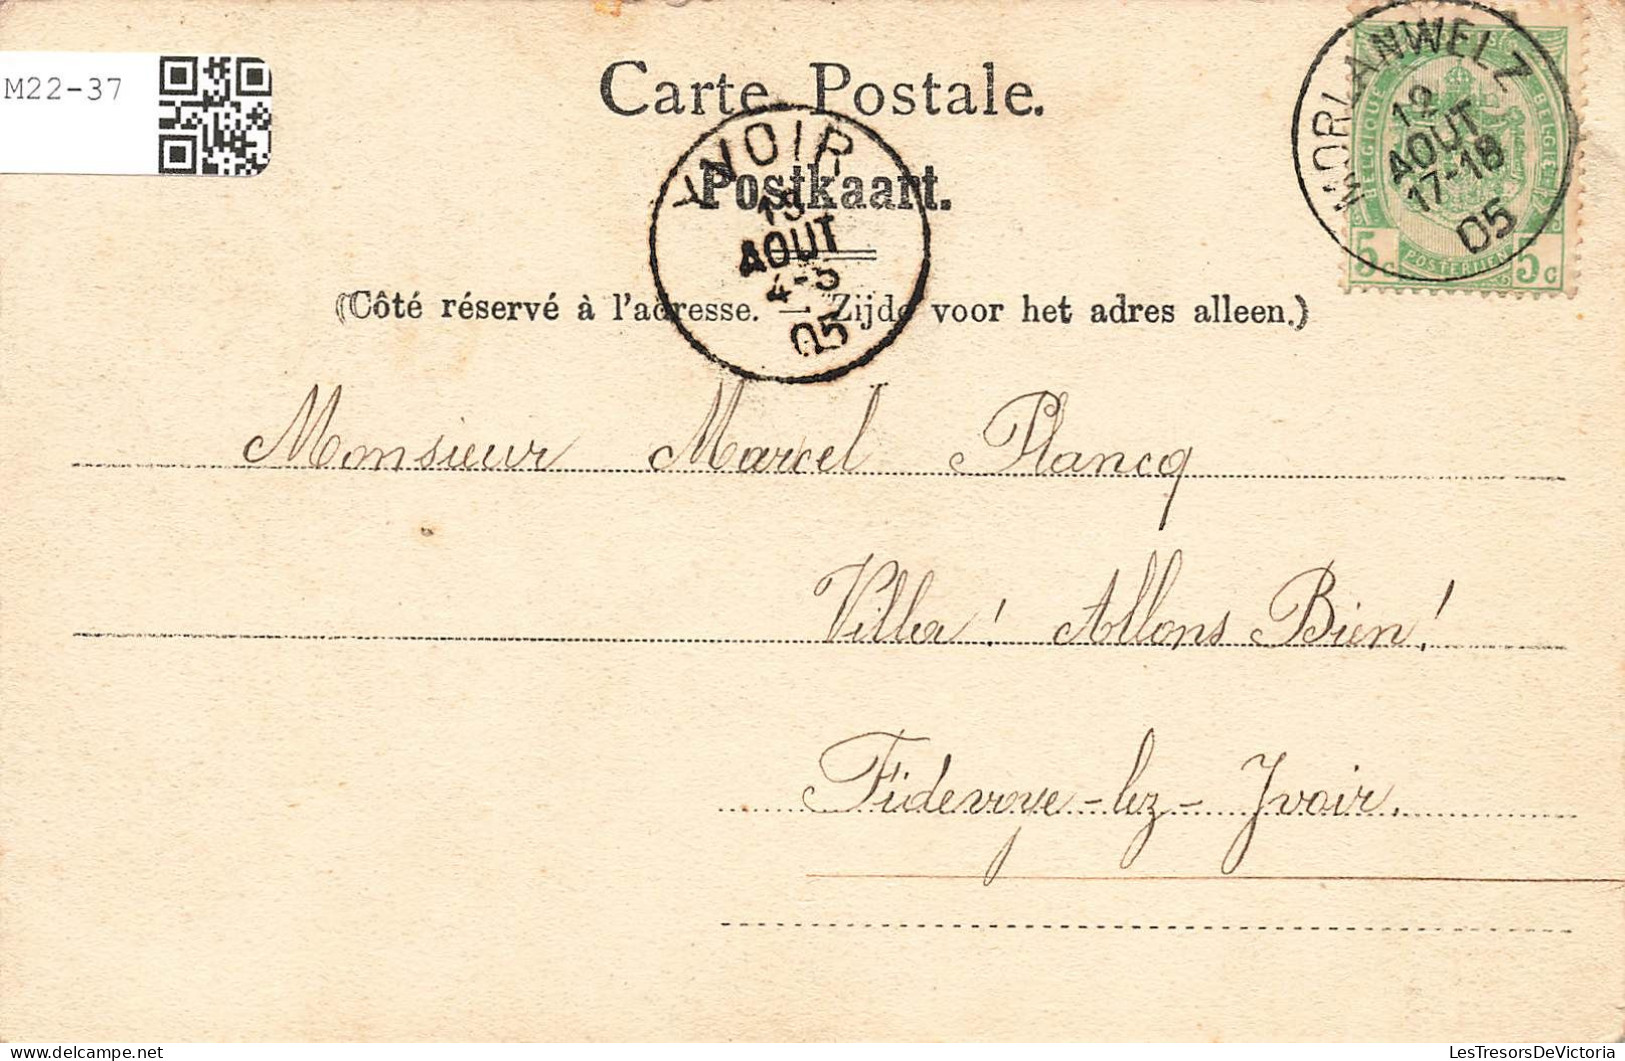 M22-37
Carte Postale.
Postkaart.
(Côté réservé à l'adresse. — Zijde voor het adres alleen.)
MORLANWELZ
12
AOUT
17-18
05
BELGIQUE
BELGIË
5 c
POSTERIJEN
5 c
YVOIR
13
AOUT
4-5
05
Monsieur Marcel Plancq
Villa! Allons Bien!
Fidevoye-lez-Yvoir.
LesTresorsDeVictoria